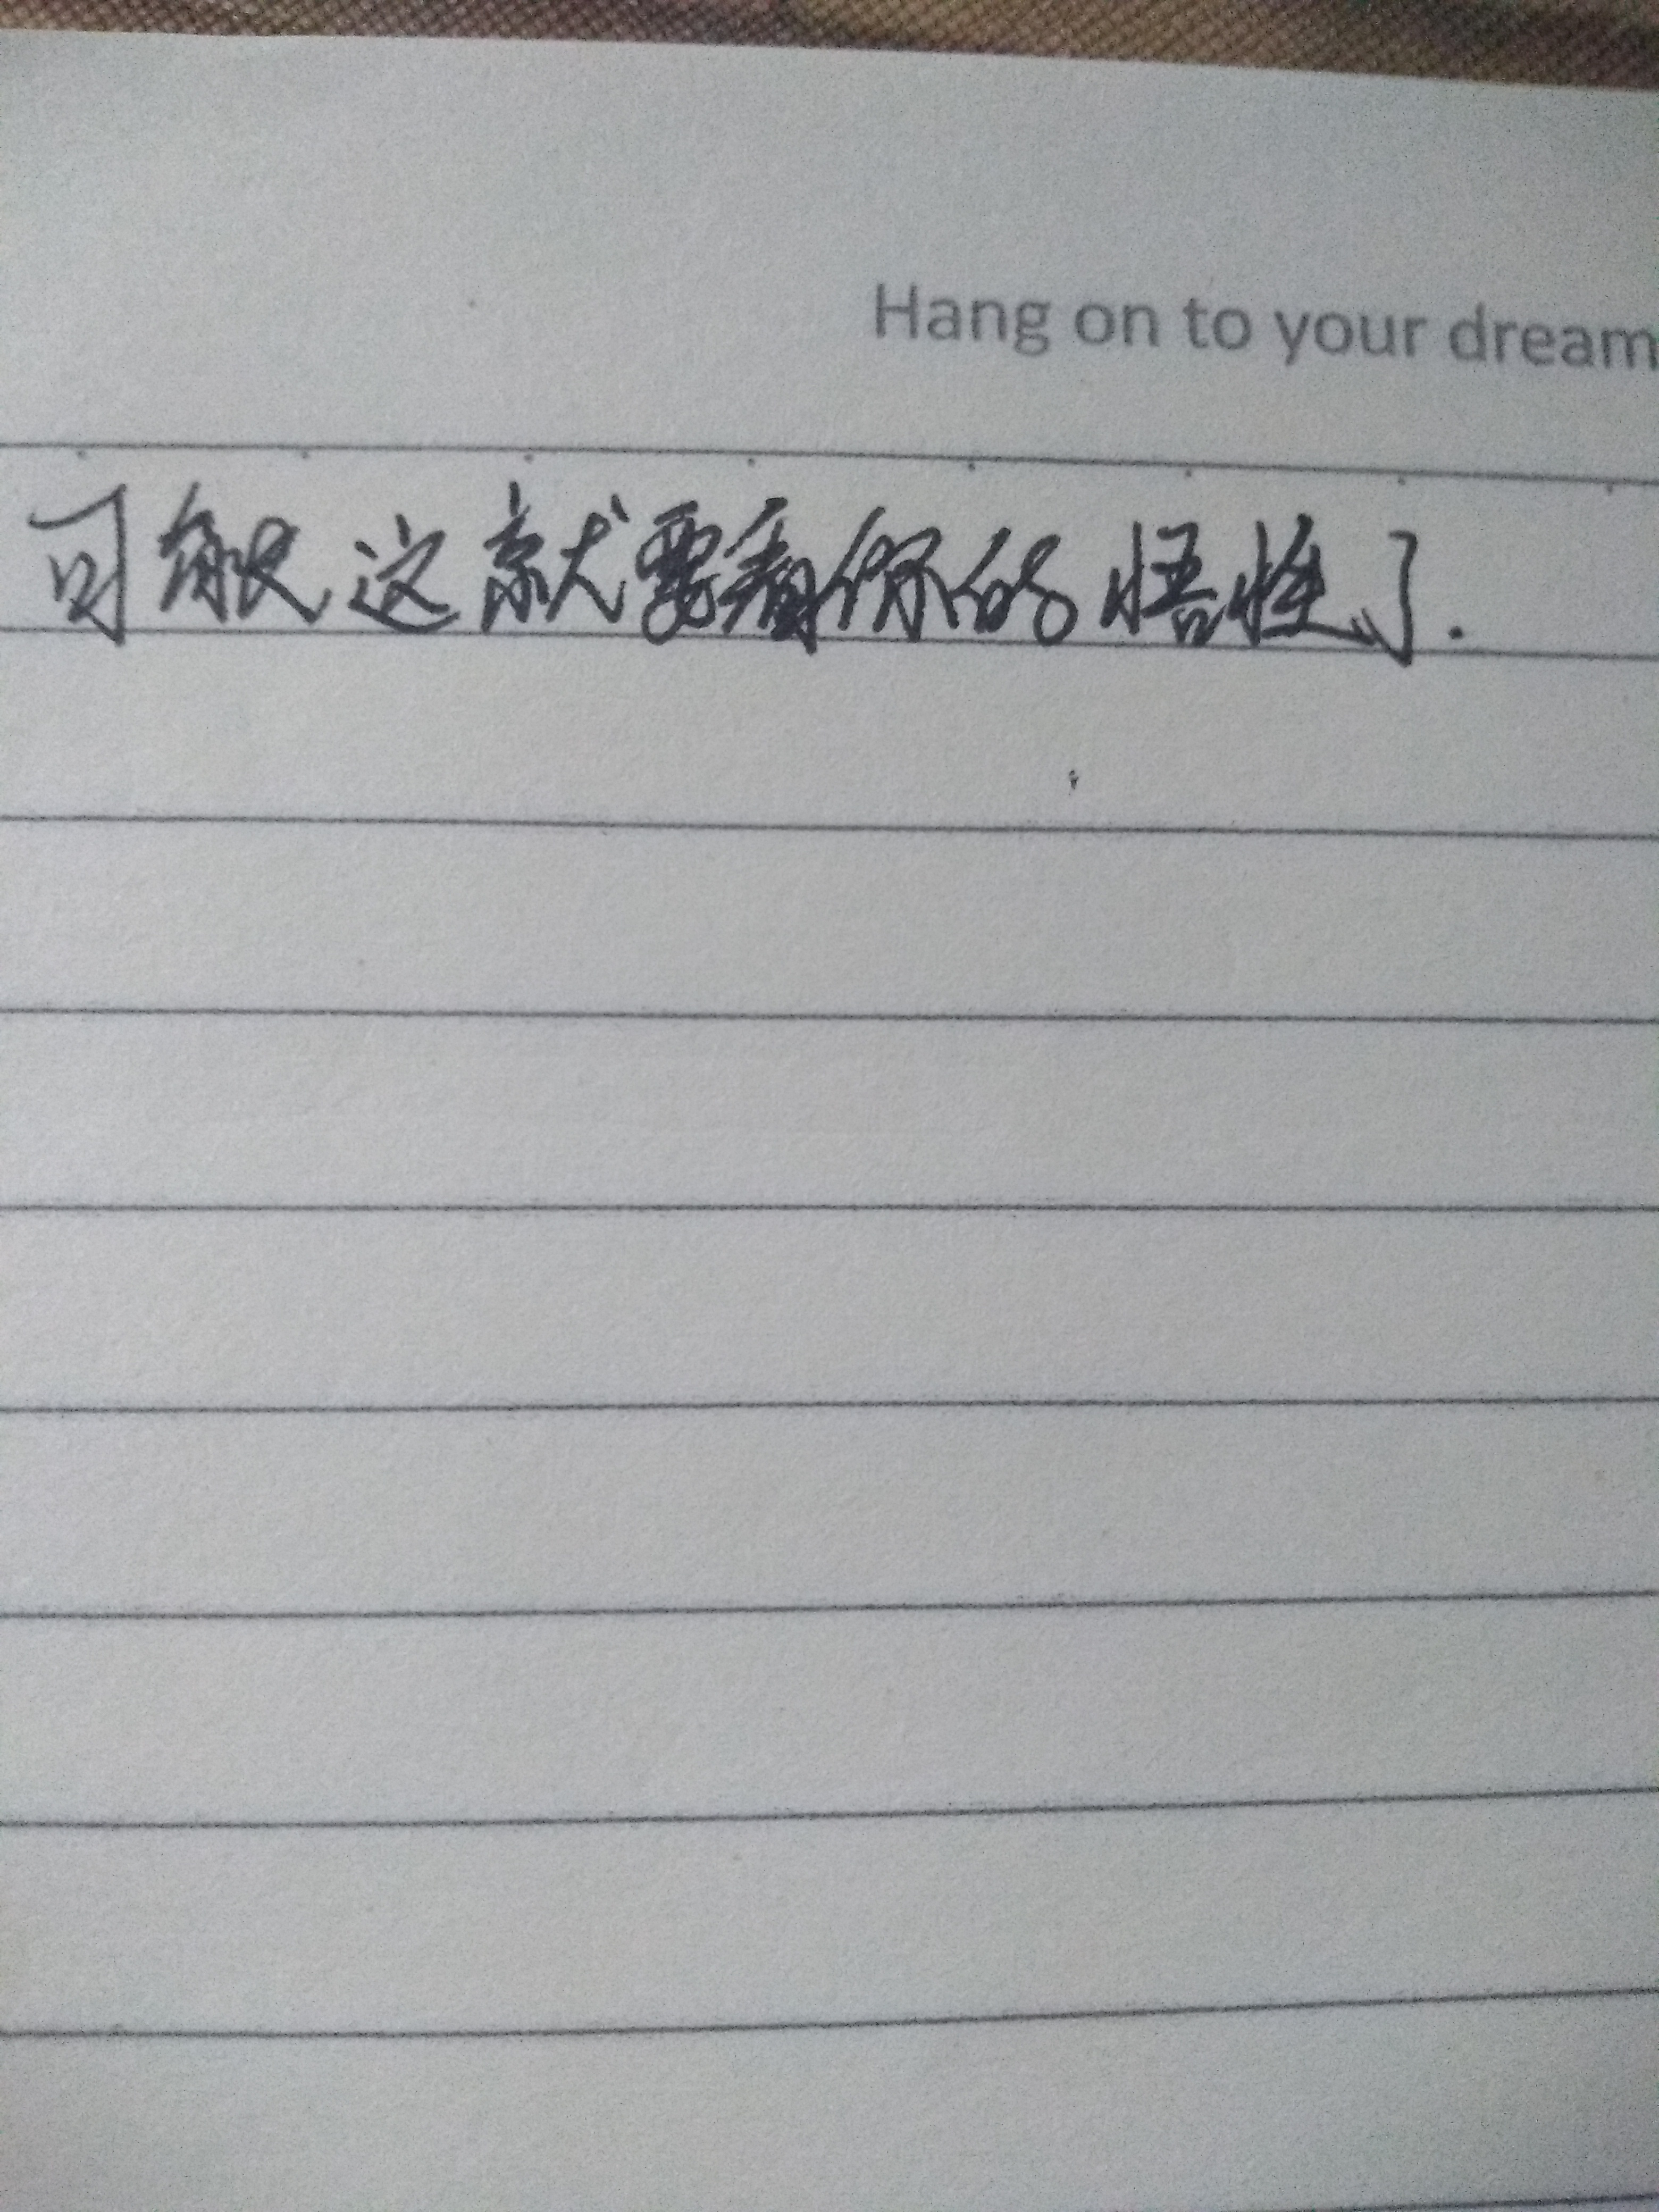 Hang on to your dream
可能这就要看你的悟性了.